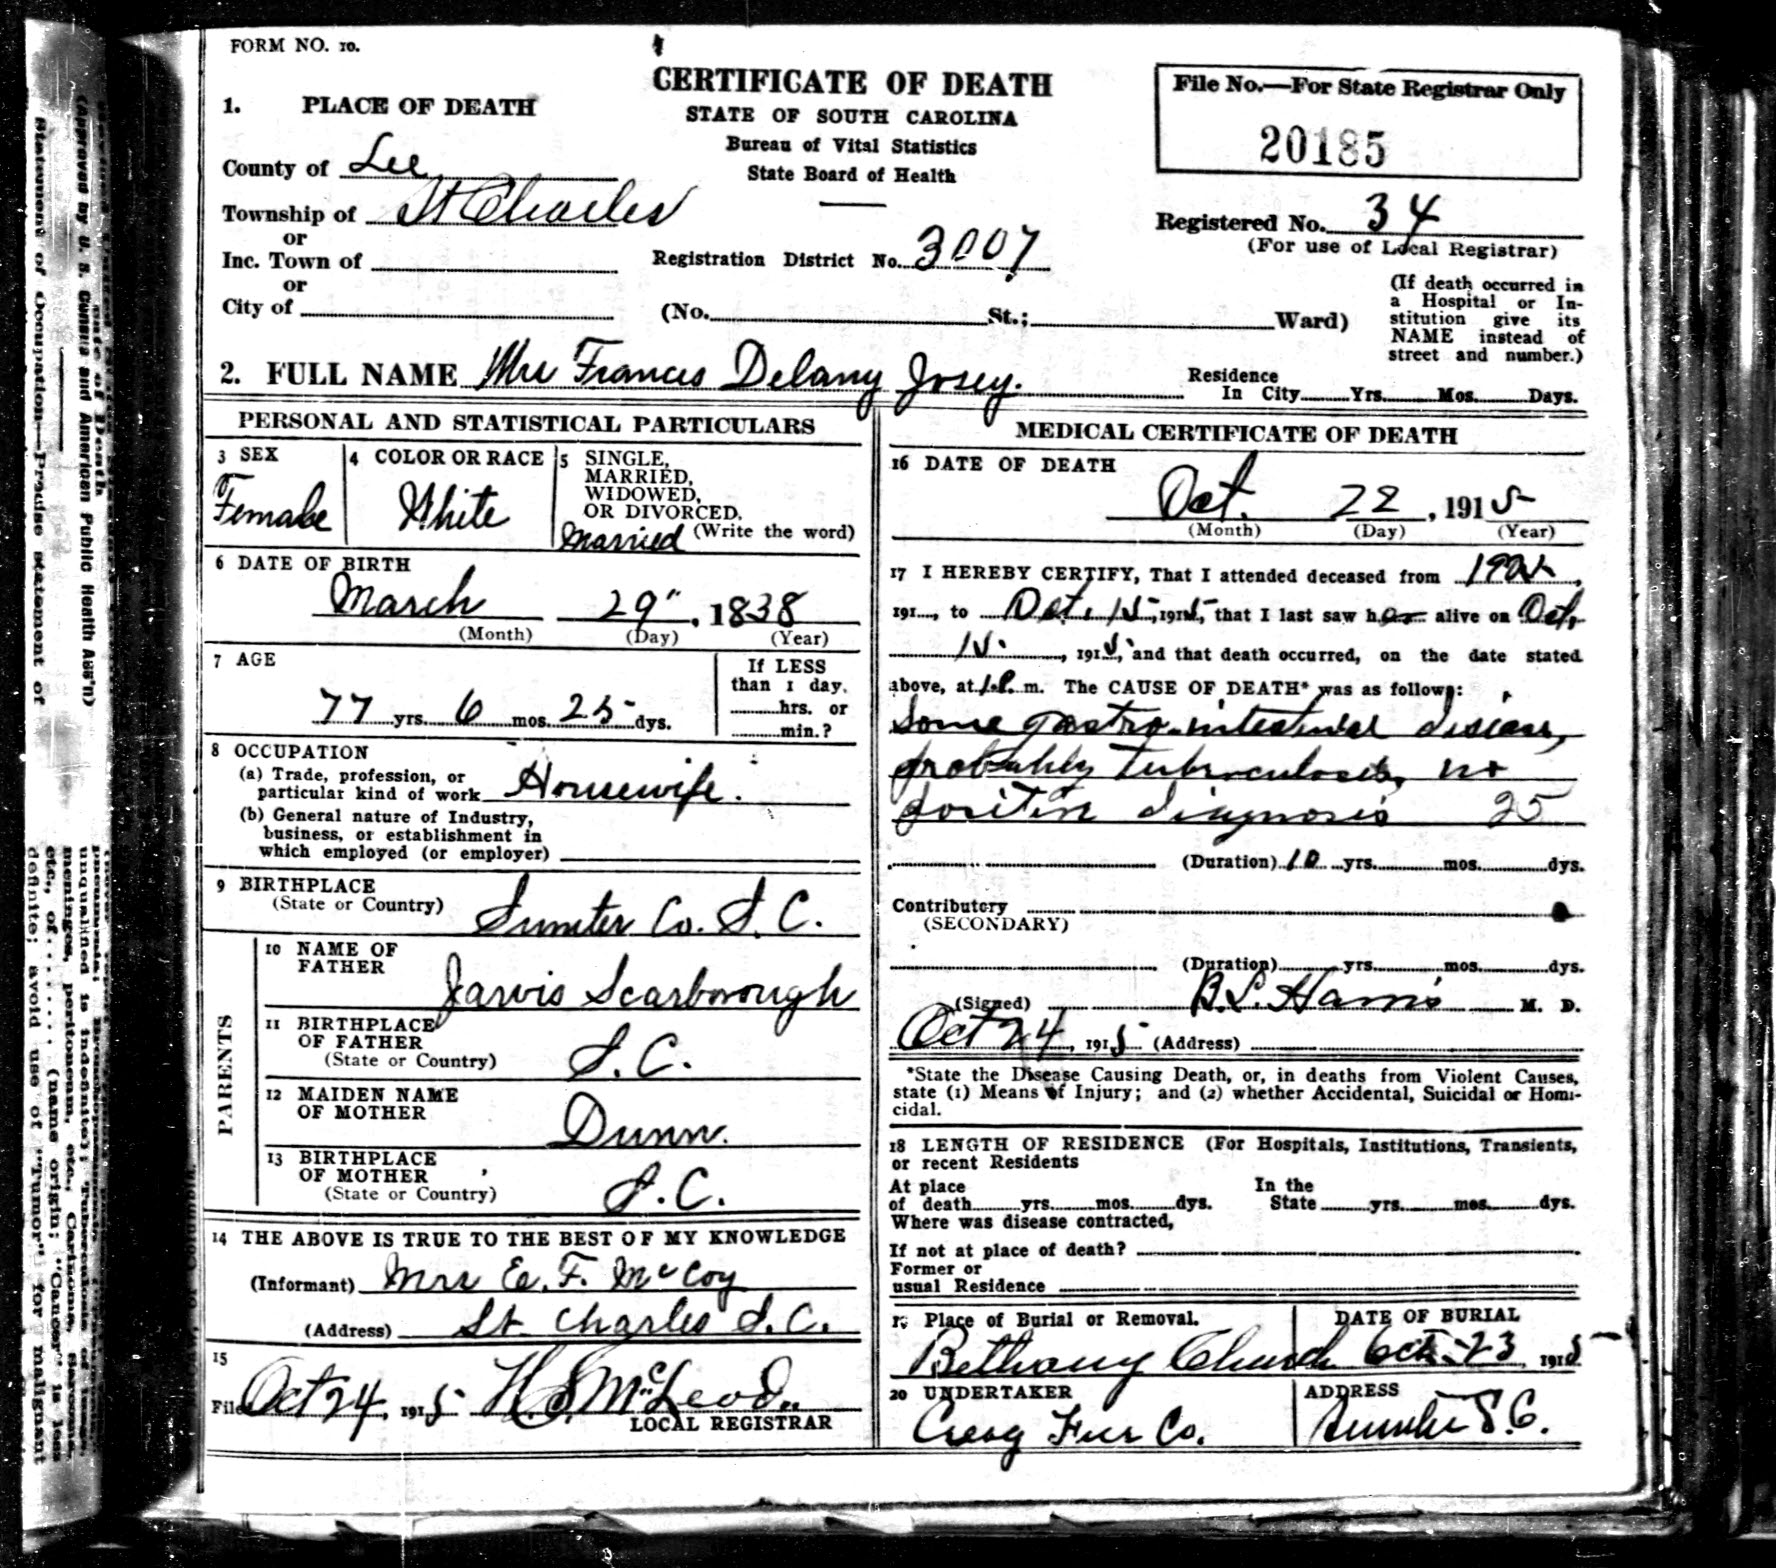 FORM NO. 10.
CERTIFICATE OF DEATH
STATE OF SOUTH CAROLINA
Bureau of Vital Statistics
State Board of Health
File No.—For State Registrar Only
20185
1. PLACE OF DEATH
County of Lee
Township of St Charles
or
Inc. Town of
or
City of
Registration District No. 3007
Registered No. 34
(For use of Local Registrar)
(No. St.; Ward)
(If death occurred in
a Hospital or In-
stitution give its
NAME instead of
street and number.)
2. FULL NAME Mrs Frances Delany Josey.
Residence
In City Yrs. Mos. Days.
PERSONAL AND STATISTICAL PARTICULARS
3 SEX
Female
4 COLOR OR RACE
White
5 SINGLE,
MARRIED,
WIDOWED,
OR DIVORCED.
Married (Write the word)
6 DATE OF BIRTH
March 29", 1838
(Month) (Day) (Year)
7 AGE
77 yrs. 6 mos. 25 dys.
If LESS
than 1 day,
hrs. or
min.?
8 OCCUPATION
(a) Trade, profession, or
particular kind of work Housewife.
(b) General nature of Industry,
business, or establishment in
which employed (or employer)
9 BIRTHPLACE
(State or Country)
Sumter Co. S. C.
PARENTS
10 NAME OF
FATHER
Jarvis Scarborough
11 BIRTHPLACE
OF FATHER
(State or Country)
S. C.
12 MAIDEN NAME
OF MOTHER
Dunn.
13 BIRTHPLACE
OF MOTHER
(State or Country)
S. C.
14 THE ABOVE IS TRUE TO THE BEST OF MY KNOWLEDGE
(Informant) Mrs E. F. McCoy
(Address) St. Charles S. C.
15
File Oct 24, 1915 H. S. McLeod
LOCAL REGISTRAR
MEDICAL CERTIFICATE OF DEATH
16 DATE OF DEATH
Oct. 22, 1915
(Month) (Day) (Year)
17 I HEREBY CERTIFY, That I attended deceased from
191 , to Oct. 15, 1915, that I last saw her alive on Oct.
15, 1915, and that death occurred, on the date stated
above, at 1 P. m. The CAUSE OF DEATH* was as follows:
Some gastro-intestinal disease,
probably tuberculosis, no
positive diagnosis 25
(Duration) 10 yrs. mos. dys.
Contributory
(SECONDARY)
(Duration) yrs. mos. dys.
(Signed) B. L. Harris M. D.
Oct 24, 1915 (Address)
*State the Disease Causing Death, or, in deaths from Violent Causes,
state (1) Means of Injury; and (2) whether Accidental, Suicidal or Homi-
cidal.
18 LENGTH OF RESIDENCE (For Hospitals, Institutions, Transients,
or recent Residents
At place
of death yrs. mos. dys.
In the
State yrs. mos. dys.
Where was disease contracted,
If not at place of death?
Former or
usual Residence
19 Place of Burial or Removal.
Bethany Church
DATE OF BURIAL
Oct. 23 1915
20 UNDERTAKER
Craig Fur Co.
ADDRESS
Sumter S. C.